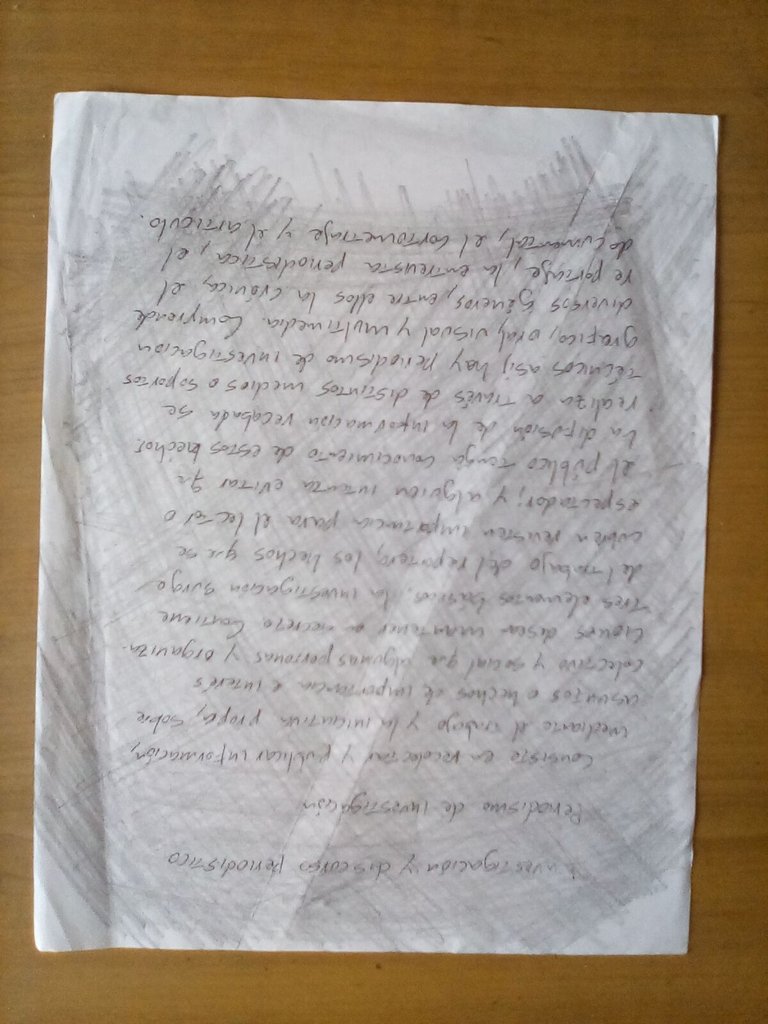 Investigación y discurso periodistico
Periodismo de investigación
Consiste en recolectar y publicar información,
mediante el trabajo y la iniciativa propia, sobre
asuntos o hechos de importancia e interés
colectivo y social que algunas personas y organiza-
ciones desean mantener en secreto Contiene
tres elementos básicos: la investigación surge
del trabajo del reportero, los hechos que se
cubren revisten importancia para el lector o
espectador; y alguien intenta evitar q
el público tenga conocimiento de estos hechos.
La difusión de la información recabada se
realiza a través de distintos medios o soportes
técnicos así, hay periodismo de investigación
gráfico, oral, visual y multimedia. Comprende
diversos géneros, entre ellos la crónica, el
reportaje, la entrevista periodística, el
documental, el cortometraje y el artículo.